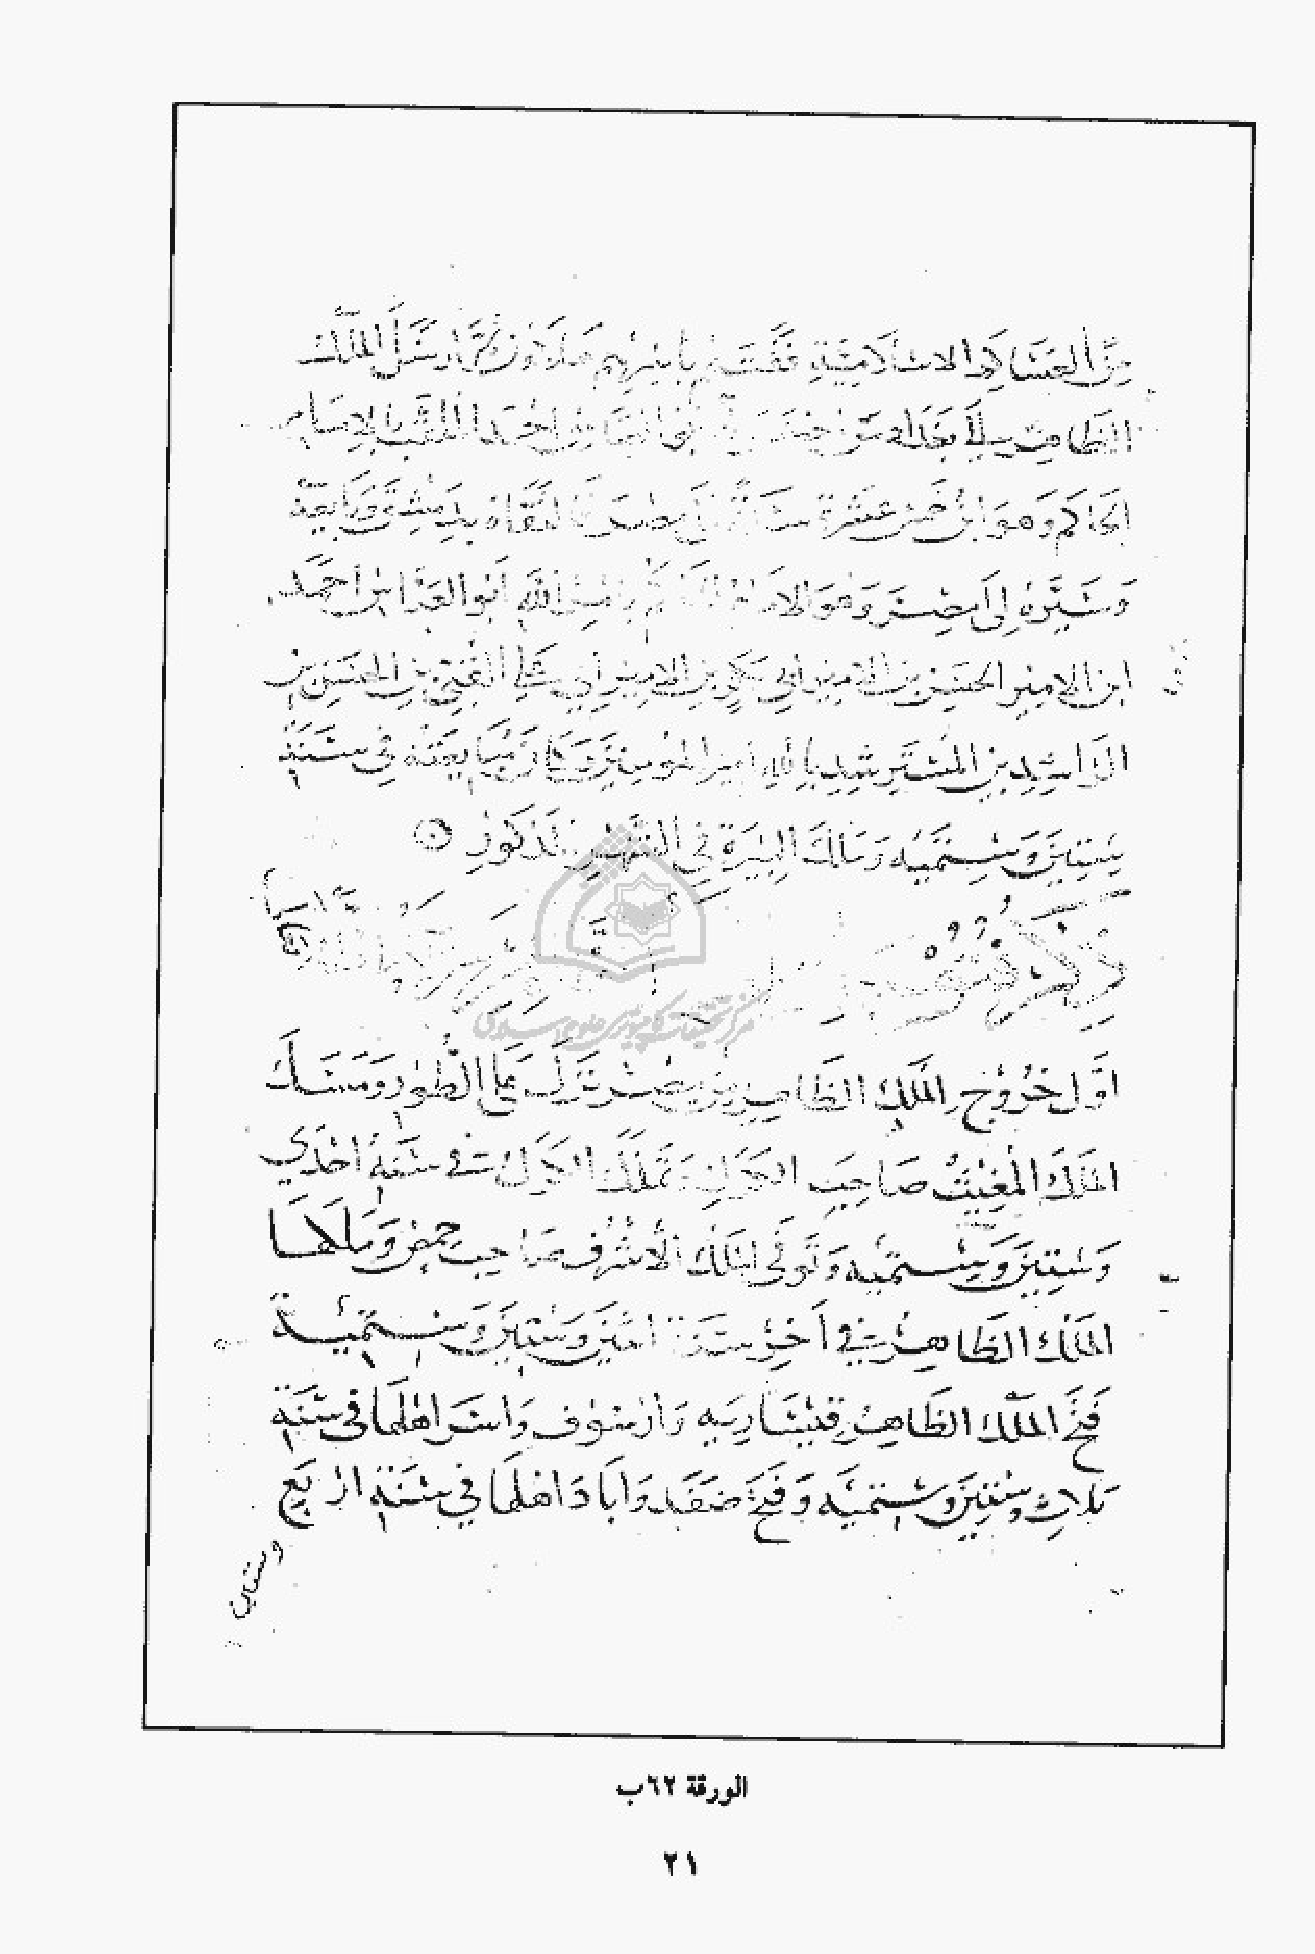 من العساكر الاسلامية فقتلهم باسرهم هلاوون ثم ارسل الملك
الظاهر الى بغداد من احضر ابو العباس احمد الملقب بالامام
الحاكم وهو ابن خمس عشرة سنة التقاه بدمشق وبايعه
وسيره الى مصر وهو الامام الحاكم بامر الله ابو العباس احمد
ابن الامير الحسن بن الامير ابي بكر بن الامير ابي علي القبي بن الحسن بن
الراشد بن المسترشد بالله امير المومنين وكان مبايعته في سنة
ستين وستميه وملك البيرة في الشهر المذكور
ذكر
اول خروج الملك الظاهر من مصر نزل على الطور ومسك
الملك المغيث صاحب الكرك وتملك الكرك في سنة احدي
وستين وستميه وتوفي الملك الاشرف صاحب حمص وملكها
الملك الظاهر في اخر سنة اثنين وستين وستمئية
فتح الملك الظاهر قيساريه وارسوف واسر اهلها في سنة
ثلاث وستين وستميه وفتح صفد واباد اهلها في سنة اربع
وستين
الورقة ٦٢ب
٢١